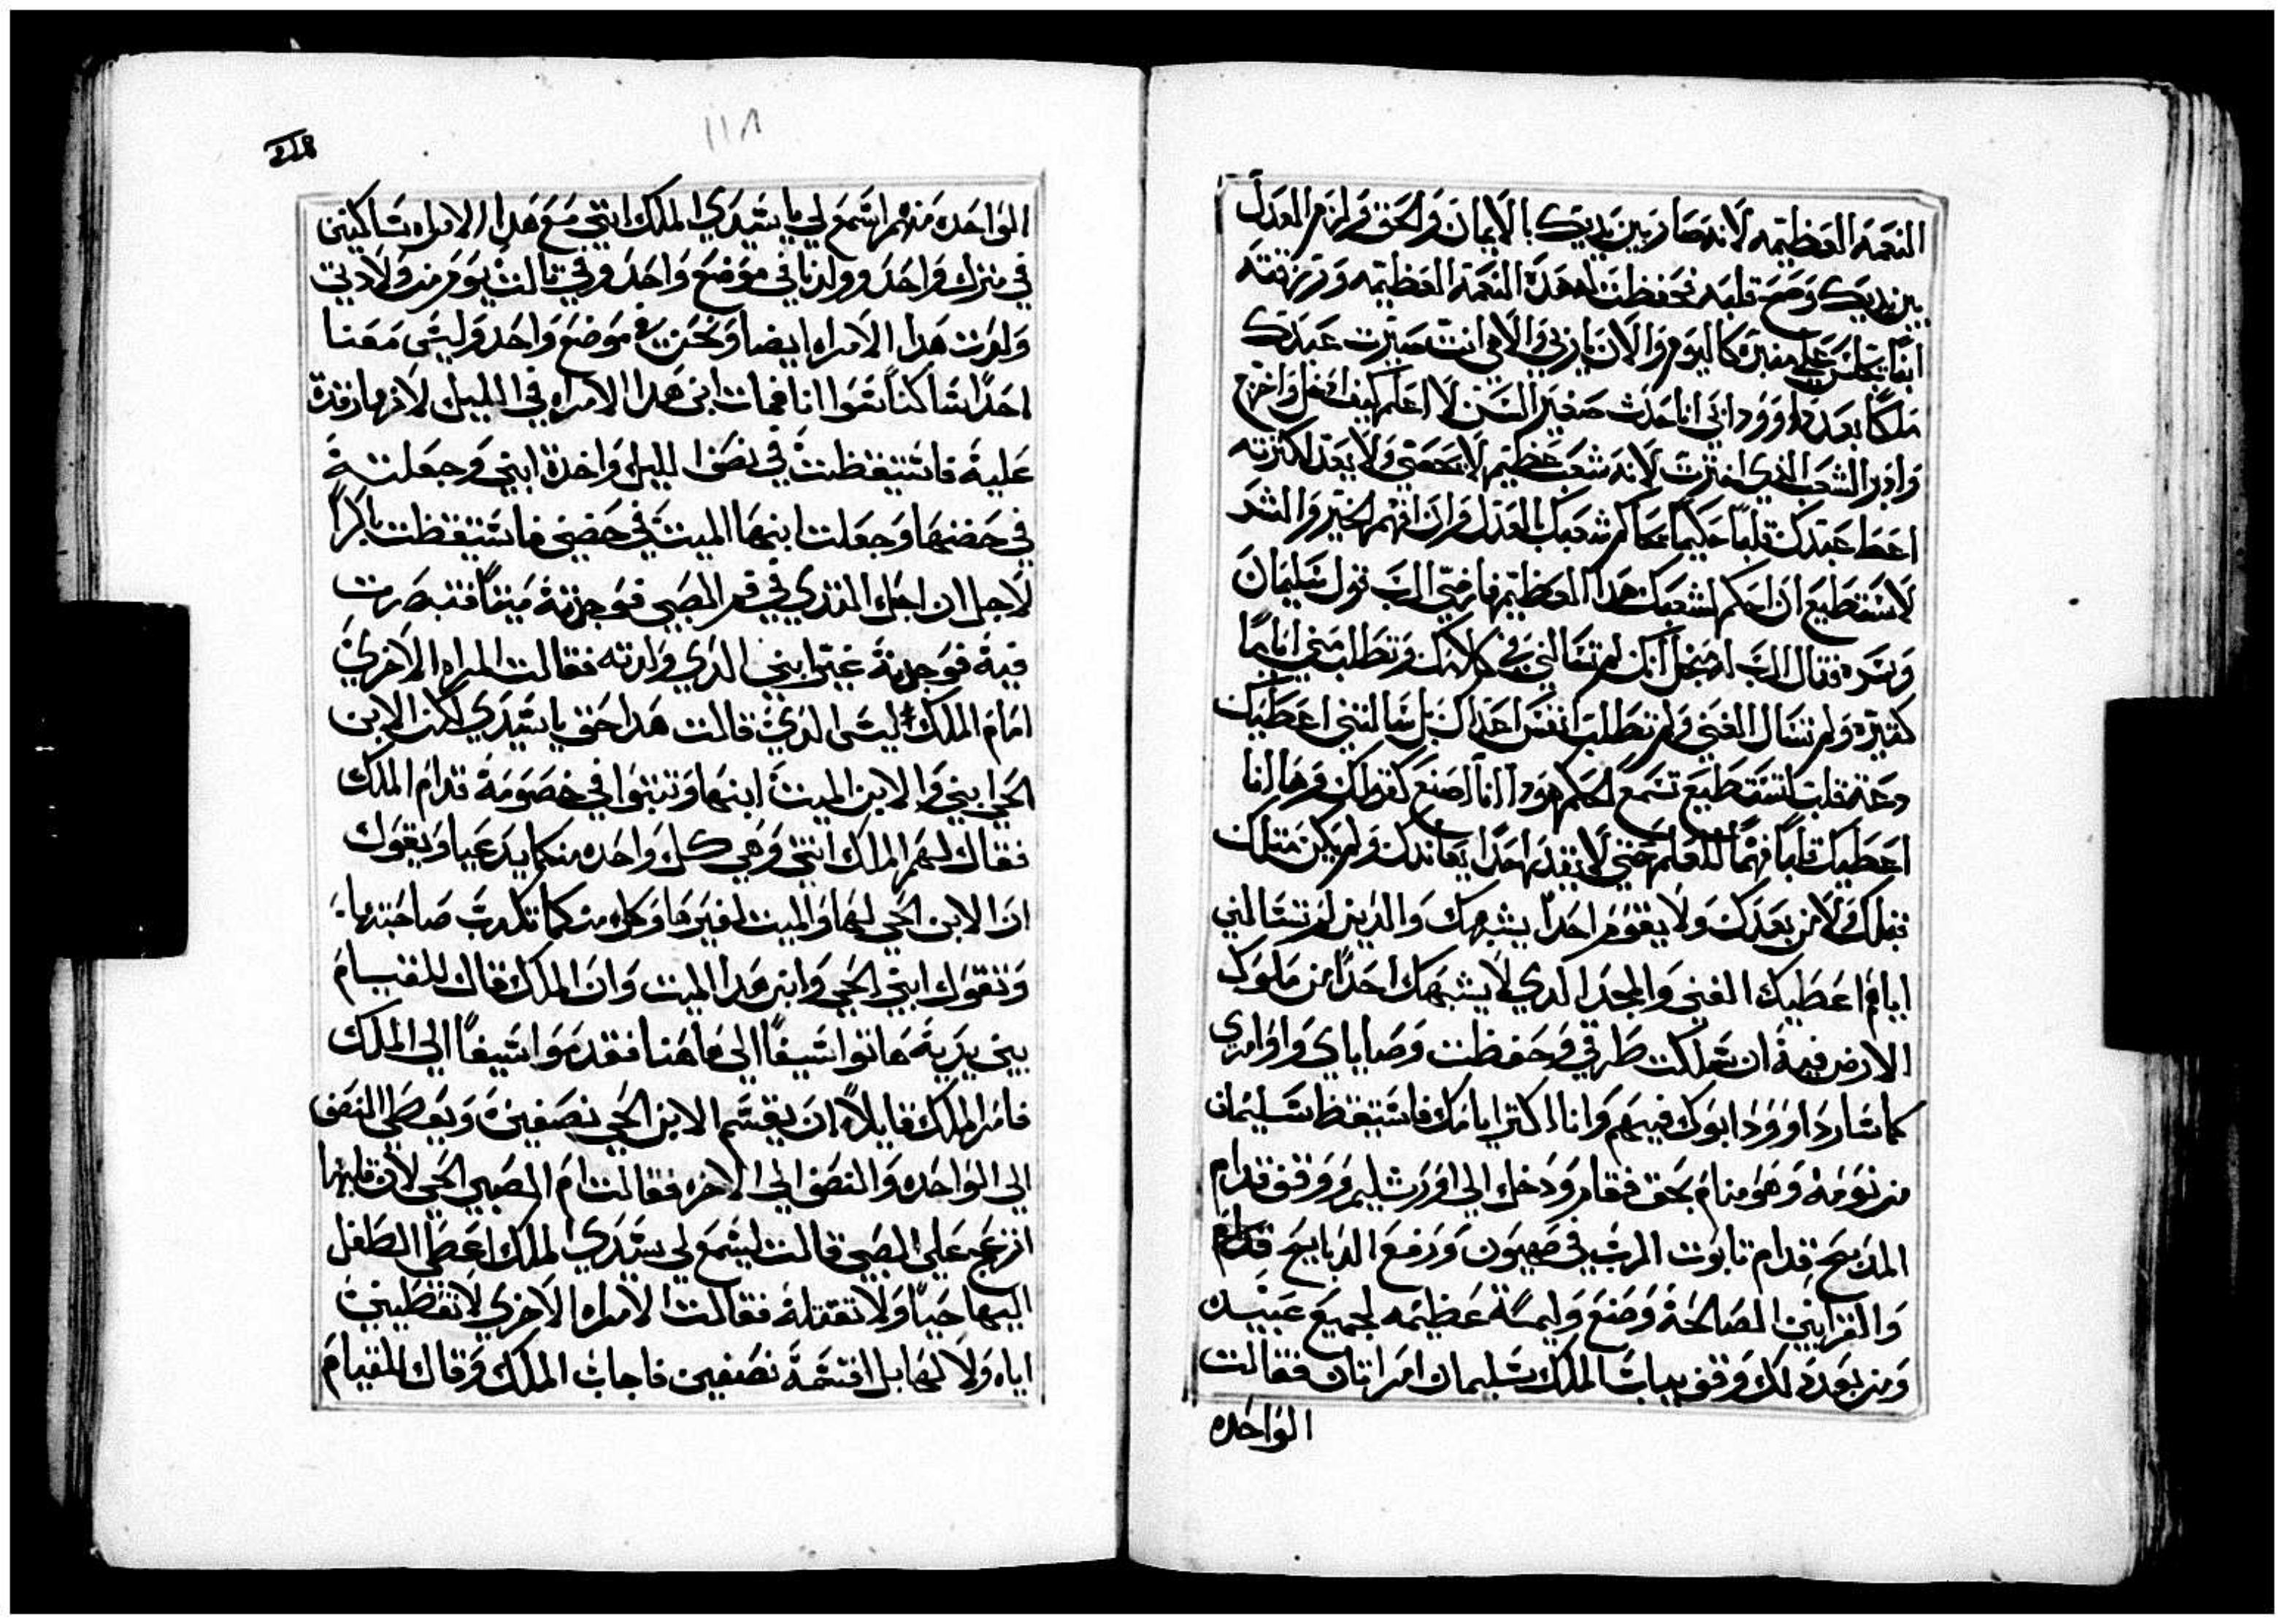 النعمه العظيمه لانه صار بين يديك بالايمان والحق ولزم العدل
بين يديك وصح قلبه فحفظت له هذه النعمه العظيمه ورزقته
ابنًا يجلس علي منبره كاليوم والان ياربي والاهي انت صيرت عبدك
ملكًا بعد داوود ابي انا حدث صغير السن لا اعلم كيف ادخل واخرج
وادبر الشعب الذي اخترت لانه شعب عظيم لا يحصي ولا يعد لكثرته
اعط عبدك قلبًا حكيمًا يحاكم شعبك بالعدل وان افهم الخير والشر
لاستطيع ان احكم لشعبك هدا العظيم فارضي الرب قول سليمان
وسره فقال الرب لاجل انك لم تسالني في كلامك وتطلب مني ايامًا
كثيره ولم تسال الغني ولم تطلب انفس اعداك بل سالتني اعطيك
قلب تستطيع تسمع الحكم هودا انا اصنع كقولك وها انا
اعطيك قلبًا فهمًا للعلم حتي لا يقدر احدًا يعاندك ولم يكن متلك
قبلك ولا من بعدك ولا يقوم احدًا يشبهك والدين لم تسالني
اياهم اعطيك الغني والمجد الدي لا يشبهك احدًا من ملوك
الارض فيه ان سلكت طرقي وحفظت وصاياي واوامري
كما سار داوود ابوك فيهم وانا اكتر ايامك فاستيقظ سليمان
من نومه وهو منام بحق فقام ودخل الي اورشليم ووقف قدام
المدبح قدام تابوت الرب في صهيون ورفع الدبايح قدام
والقرابين الصالحة وصنع وليمة عظيمه لجميع عبيده
ومن بعد دلك وقف بباب الملك سليمان امراتان فقالت
الواحده
١١٨
الواحده منهم اسمع لي يا سيدي الملك انني مع هدا الامراه ساكنين
في منزل واحد وولدنا في موضع واحد وفي تالت يوم من ولادتي
ولدت هدا الامراه ايضا ونحن في موضع واحد وليس معنا
احدًا ساكنًا سوا انا فمات ابن هدا الامراه في الليل لانها رقدة
علية فاستيقظت في نصف الليل واخدة ابني وجعلتة
في حضنها وجعلت ابنها الميت في حضني فاستيقظت باكرًا
لاجل ان اجعل التدي في فم الصبي فوجدتة ميتًا فتبصرت
فية فوجدتة غير ابني الدي ولدته فقالت المراه الاخري
امام الملك ليس الدي قالت هدا حق يا سيدي لكن الابن
الحي ابني والابن الميت ابنها وتبتوا في خصومة قدام الملك
فقال لهم الملك انتي وهي كل واحده منكما يدعيا ويقول
ان الابن الحي لها والميت لغيرها وكل منكما تكدب صاحبتها
وتقول ابني الحي وابن هدا الميت وان الملك قال للقيام
بين يدية هاتوا سيفًا الي هاهنا فقدموا سيفًا الي الملك
فامر الملك قايلاً ان يقسم الابن الحي نصفين ويعطي النصف
الي الواحده والنصف الي الاخره فقالت ام الصبي الحي لان قلبها
انزعج علي الصبي قالت ليسمع لي سيدي الملك اعطي الطفل
اليها حيًا ولا تقتلة فقالت الامراه الاخري لا تعطيني
اياه ولا لها بل اقسمة نصفين فاجاب الملك وقال للقيام